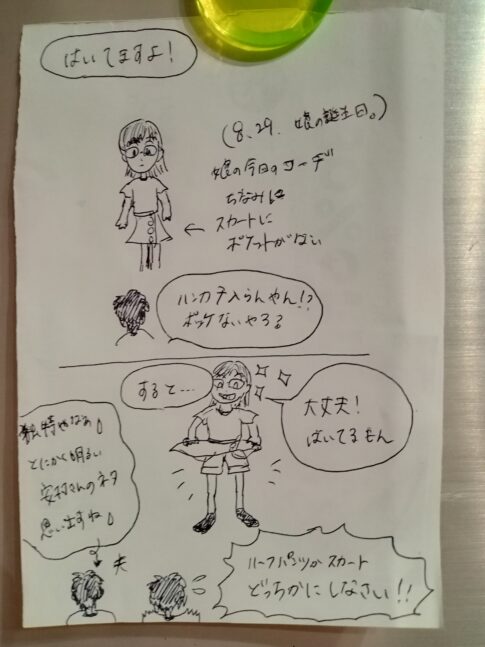 はいてますよ!
(8.29. 娘の誕生日。)
娘の今日のコーデ
ちなみに
スカートに
ポケットがない
ハンカチ入らんやん!?
ポッケないやろ
すると…
大丈夫!
はいてるもん
独特やなぁ
とにかく明るい
安村さんのネタ
思い出すね
夫
ハーフパンツかスカート
どっちかにしなさい!!